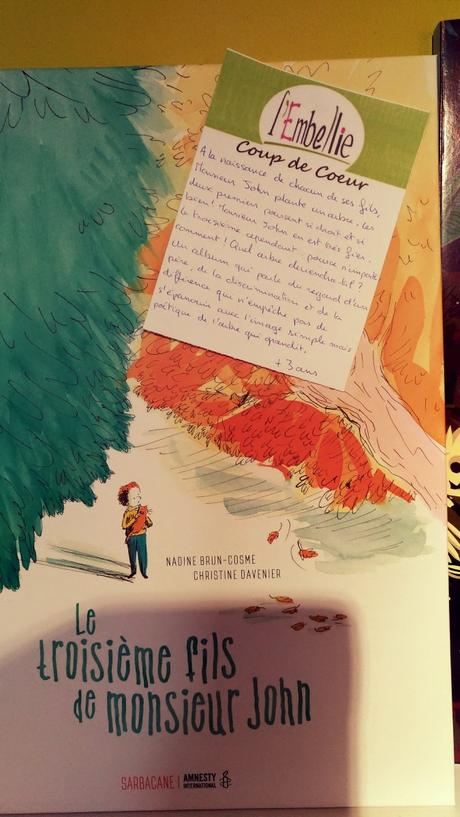 l'Embellie
Coup de Coeur
A la naissance de chacun de ses fils,
Monsieur John plante un arbre. Les
deux premiers poussent si droit et si
bien ! Monsieur John en est très fier.
Le troisième cependant pousse n'importe
comment ! Quel arbre deviendra-t-il ?
Un album qui parle du regard d'un
père, de la discrimination et de la
différence qui n'empêche pas de
s'épanouir avec l'image simple mais
poétique de l'arbre qui grandit.
+ 3 ans
NADINE BRUN-COSME
CHRISTINE DAVENIER
Le
troisième fils
de monsieur John
SARBACANE | AMNESTY
INTERNATIONAL